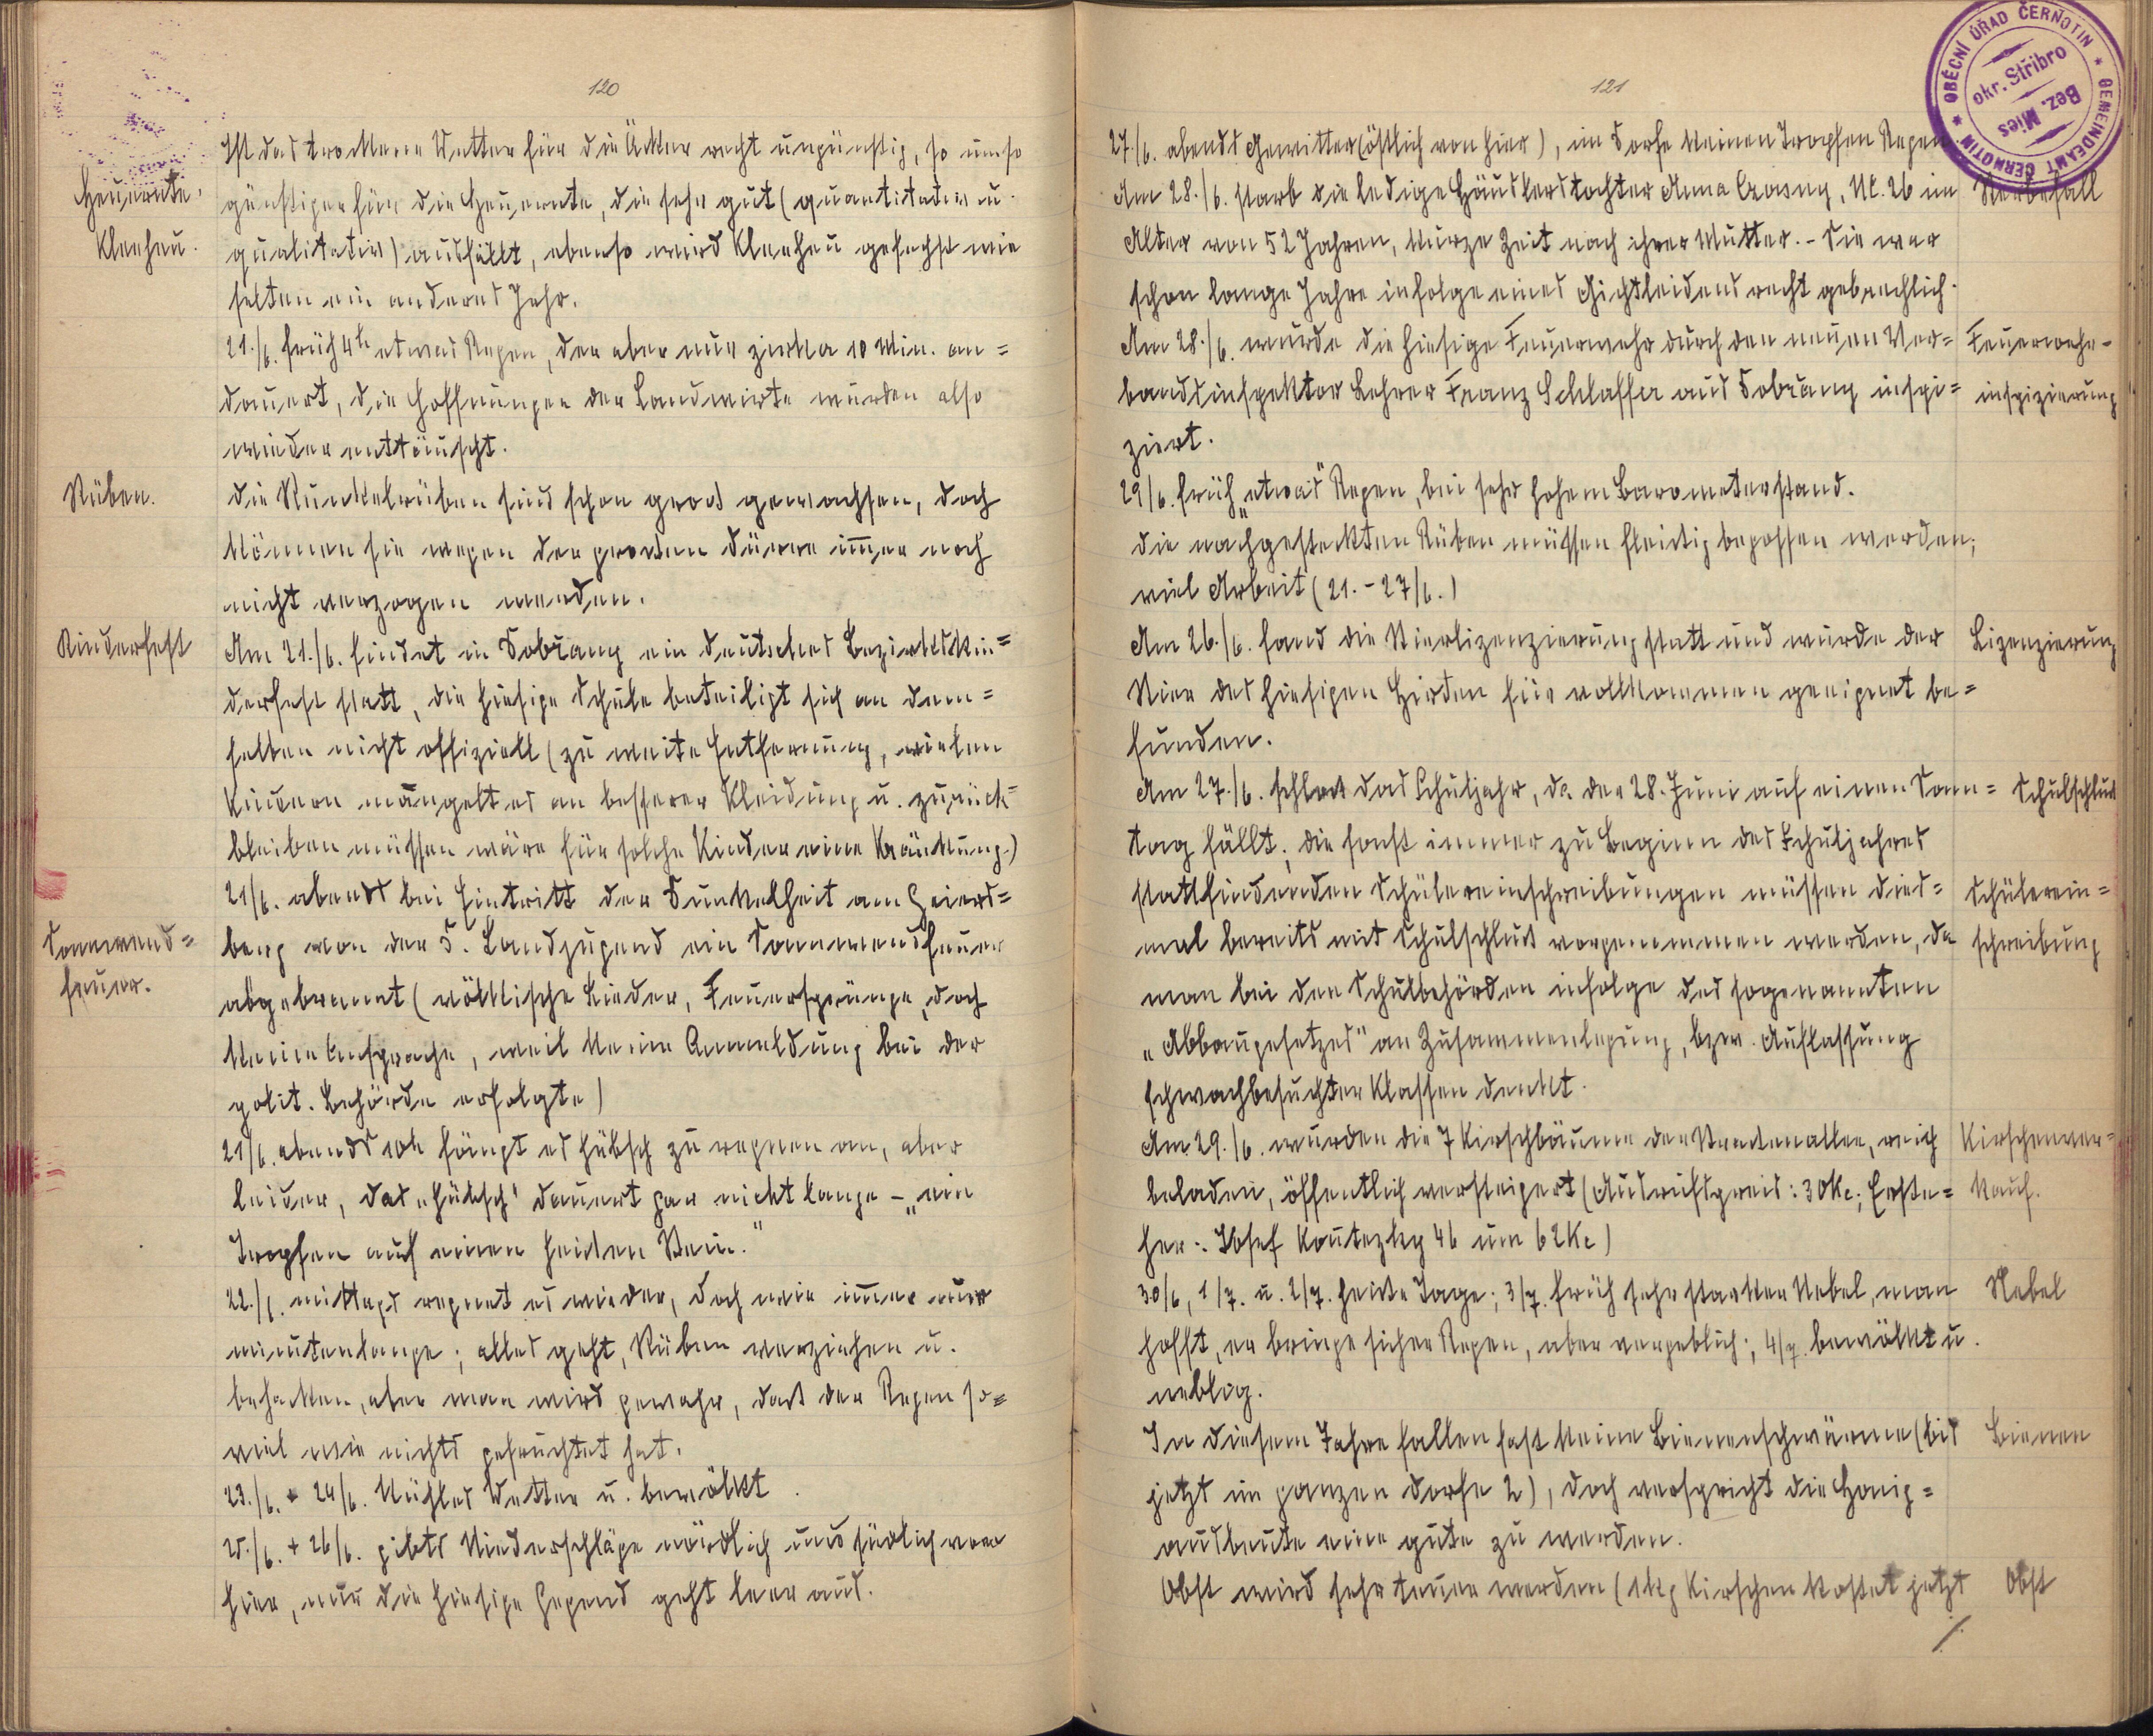 120
Ist das trockene Wetter für die Äcker recht ungünstig, so umso
Heuernte.
günstiger für die Heuernte, die sehr gut (quantitativ u.
Kleeheu.
qualitativ) ausfällt, ebenso wird Kleeheu gefechst wie
selten ein anderes Jahr.
21./6. früh 4h etwas Regen, der aber nur zirka 10 Min. an=
dauert, die Hoffnungen der Landwirte wurden also
wieder enttäuscht.
Rüben.
Die Runkelrüben sind schon gross gewachsen, doch
können sie wegen der grossen Dürre immer noch
nicht verzogen werden.
Kinderfest
Am 21./6. findet in Dobřany ein deutsches Bezirkskin=
derfest statt, die hiesige Schule beteiligt sich an dem=
selben nicht offiziell (zu weite Entfernung, vielen
Kindern mangelt es an besserer Kleidung u. zurück=
bleiben müssen wäre für solche Kinder eine Kränkung.)
21/6. abends bei Eintritt der Dunkelheit am Geiers=
Sonnwend=
feuer.
berg von der d. Landjugend ein Sonnwendfeuer
abgebrannt (völkische Lieder, Feuersprünge, doch
keine Ansprache, weil keine Anmeldung bei der
polit. Behörde erfolgte)
21/6. abends 10h fängt es hübsch zu regnen an, aber
leider, das "hübsch" dauert gar nicht lange – „ein
Tropfen auf einen heißen Stein."
22./6. mittags regnet es wieder, doch wie immer nur
minutenlange; alles geht, Rüben verziehen u.
behacken, aber man wird gewahr, dass der Regen so=
viel wie nichts gefruchtet hat.
23./6. + 24/6. kühles Wetter u. bewölkt.
25./6. + 26/6. gibts Niederschläge nördlich und südlich von
hier, nur die hiesige Gegend geht leer aus.
121
OBECNÍ ÚŘAD ČERNOTIN * GEMEINDEAMT ČERNOTIN *
okr. Stříbro
Bez. Mies
27./6. abends Gewitter (östlich von hier), im Dorfe keinen Tropfen Regen.
Am 28./6. starb die ledige Häuslerstochter Anna Czasny, Nc. 26 im
Sterbefall
Alter von 52 Jahren, kurze Zeit nach ihrer Mutter. – Sie war
schon lange Jahre infolge eines Gichtleidens recht gebrechlich.
Am 28./6. wurde die hiesige Feuerwehr durch den neuen Ver=
Feuerwehr-
bandsinspektor Lehrer Franz Schlaffer aus Dobřany inspi=
inspizierung
ziert.
29/6. früh „etwas" Regen, bei sehr hohem Barometerstand.
Die nachgesteckten Rüben müssen fleissig begossen werden;
viel Arbeit (21. – 27/6.)
Am 26./6. fand die Stierlizenzierung statt und wurde der
Lizenzierung
Stier des hiesigen Hirten für vollkommen geeignet be=
funden.
Am 27./6. schloss das Schuljahr, da der 28. Juni auf einen Sonn=
Schulschluss
tag fällt; die sonst immer zu Beginn des Schuljahres
stattfindenden Schülereinschreibungen müssen dies=
Schülerein=
mal bereits mit Schulschluss vorgenommen werden, da
schreibung
man bei den Schulbehörden infolge des sogenannten
„Abbaugesetzes" an Zusammenlegung, bzw. Auflassung
schwachbesuchter Klassen denkt.
Am 29./6. wurden die 7 Kirschbäume der Strassenallee, reich
Kirschenver=
beladen, öffentlich versteigert (Ausrufspreis: 30 Kc; Erste=
kauf.
her: Josef Koutezky 46 um 62 Kc)
30/6, 1/7. u. 2/7. heisse Tage; 3/7. früh sehr starker Nebel, man
Nebel
hofft, er bringe sicher Regen, aber vergeblich; 4/7. bewölkt u.
neblig.
In diesem Jahre fallen fast keine Bienenschwärme (bis
Bienen
jetzt im ganzen Dorfe 2), doch verspricht die Honig=
ausbeute eine gute zu werden.
Obst wird sehr teuer werden (1 kg Kirschen kostet jetzt
Obst
./.